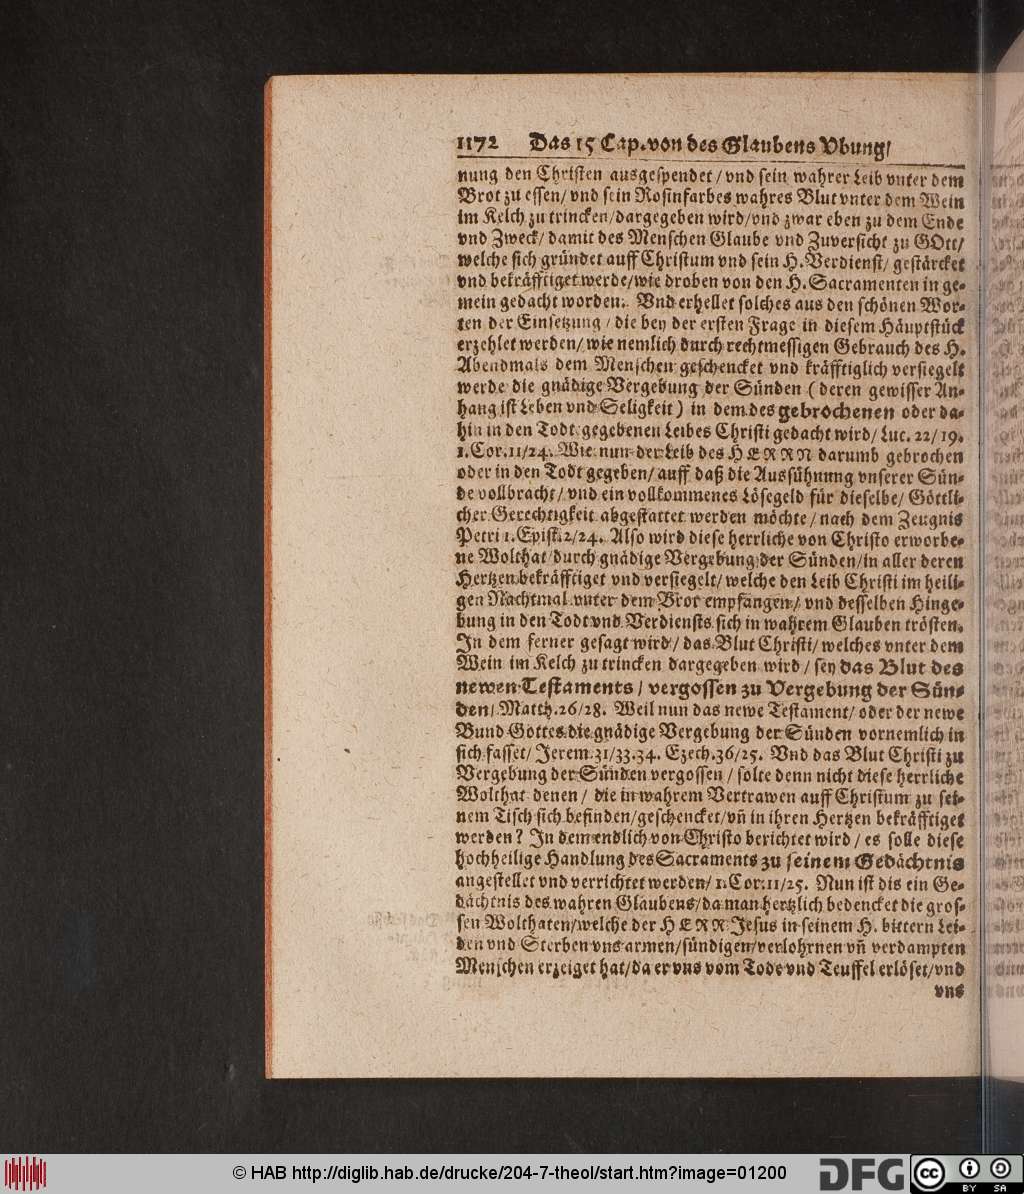 1172 Das 15 Cap. von des Glaubens Vbung/
nung den Christen ausgespendet / vnd sein wahrer Leib vnter dem
Brot zu essen/ vnd sein Rosinfarbes wahres Blut vnter dem Wein
im Kelch zu trincken/dargegeben wird/vnd zwar eben zu dem Ende
vnd Zweck/ damit des Menschen Glaube vnd Zuversicht zu GOtt/
welche sich gründet auff Christum vnd sein H. Verdienst/ gestärcket
vnd bekräfftiget werde/wie droben von den H. Sacramenten in ge-
mein gedacht worden. Vnd erhellet solches aus den schönen Wor-
ten der Einsetzung / die bey der ersten Frage in diesem Häuptstück
erzehlet werden/ wie nemlich durch rechtmessigen Gebrauch des H.
Abendmals dem Menschen geschencket vnd kräfftiglich versiegelt
werde die gnädige Vergebung der Sünden ( deren gewisser An-
hang ist Leben vnd Seligkeit ) in dem des gebrochenen oder da-
hin in den Todt gegebenen Leibes Christi gedacht wird/ Luc. 22/19.
1. Cor. 11/24. Wie nun der Leib des HERRN darumb gebrochen
oder in den Todt gegeben/ auff daß die Aussühnung vnserer Sün-
de vollbracht/ vnd ein vollkommenes Lösegeld für dieselbe/ Göttli-
cher Gerechtigkeit abgestattet werden möchte / nach dem Zeugnis
Petri 1. Epist. 2/24. Also wird diese herrliche von Christo erworbe-
ne Wolthat/durch gnädige Vergebung der Sünden/in aller deren
Hertzen bekräfftiget vnd versiegelt/ welche den Leib Christi im heili-
gen Nachtmal vnter dem Brot empfangen/ vnd desselben Hinge-
bung in den Todt vnd Verdiensts sich in wahrem Glauben trösten.
In dem ferner gesagt wird/ das Blut Christi/ welches vnter dem
Wein im Kelch zu trincken dargegeben wird / sey das Blut des
newen Testaments / vergossen zu Vergebung der Sün-
den/ Matth. 26/28. Weil nun das newe Testament/ oder der newe
Bund Gottes die gnädige Vergebung der Sünden vornemlich in
sich fasset/ Jerem. 31/33.34. Ezech. 36/25. Vnd das Blut Christi zu
Vergebung der Sünden vergossen / solte denn nicht diese herrliche
Wolthat denen / die in wahrem Vertrawen auff Christum zu sei-
nem Tisch sich befinden/geschencket/vñ in ihren Hertzen bekräfftiget
werden? In dem endlich von Christo berichtet wird / es solle diese
hochheilige Handlung des Sacraments zu seinem Gedächtnis
angestellet vnd verrichtet werden/ 1. Cor. 11/25. Nun ist dis ein Ge-
dächtnis des wahren Glaubens/da man hertzlich bedencket die gros-
sen Wolthaten/welche der HERR Jesus in seinem H. bittern Lei-
den vnd Sterben vns armen/sündigen/verlohrnen vñ verdampten
Menschen erzeiget hat/da er vns vom Tode vnd Teuffel erlöset/vnd
vns
© HAB http://diglib.hab.de/drucke/204-7-theol/start.htm?image=01200
DFG
cc
BY SA